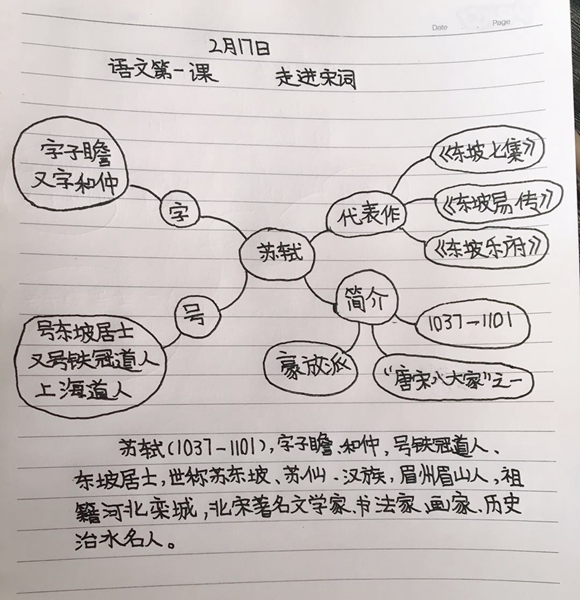 Date Page
2月17日
语文第一课 走进宋词
字子瞻
又字和仲
字
苏轼
号
号东坡居士
又号铁冠道人
上海道人
代表作
《东坡七集》
《东坡易传》
《东坡乐府》
简介
1037-1101
豪放派
"唐宋八大家"之一
苏轼(1037-1101),字子瞻、和仲,号铁冠道人、
东坡居士,世称苏东坡、苏仙、汉族,眉州眉山人,祖
籍河北栾城,北宋著名文学家、书法家、画家、历史
治水名人。